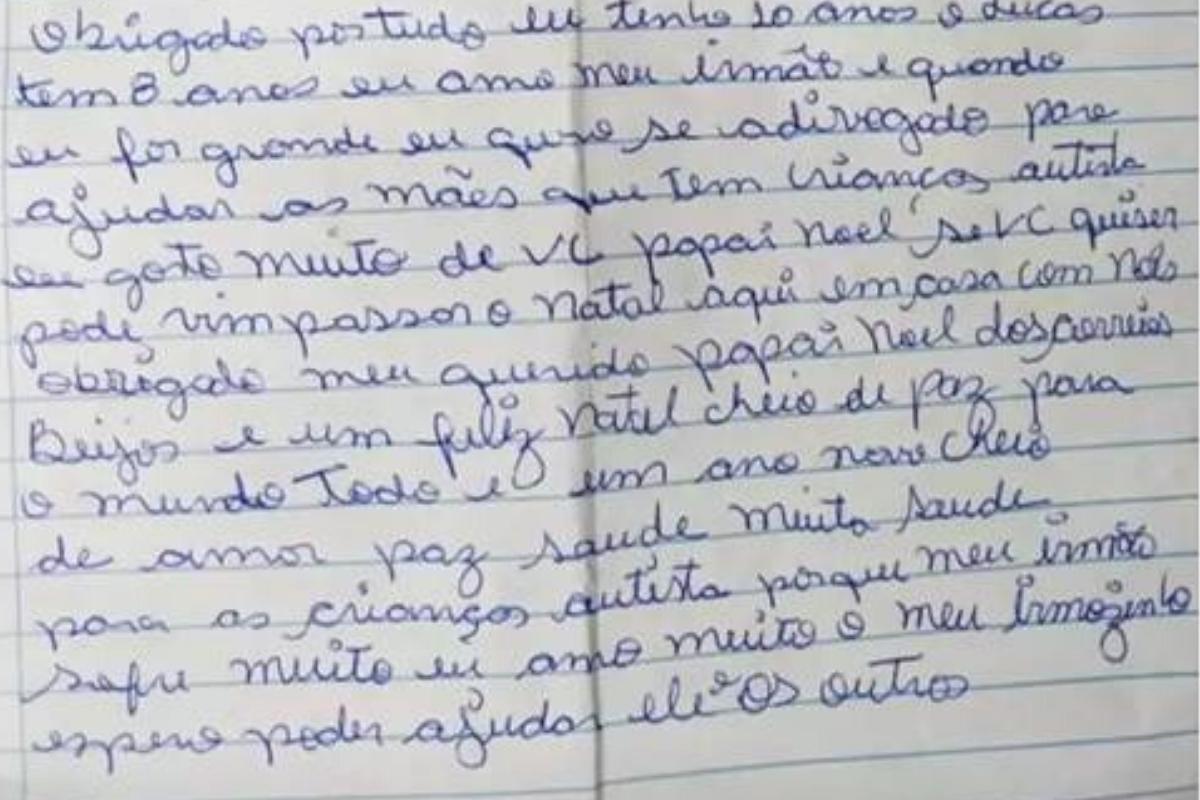 obrigado por tudo eu tenho 10 anos o Lucas
tem 8 anos eu amo meu irmão e quando
eu for grande eu quro se adivogado para
ajudar as mães que tem crianças autista
eu goto muito de vc papai noel se vc quiser
pode vim passar o natal aqui em casa com nois
obrigado meu querido papai Noel dos correios
Beijos e um feliz natal cheio de paz para
o mundo todo e um ano novo cheio
de amor paz saude muita saude
para as crianças autista porque meu irmão
sofre muito eu amo muito o meu irmozinho
espero poder ajudar ele e os outros